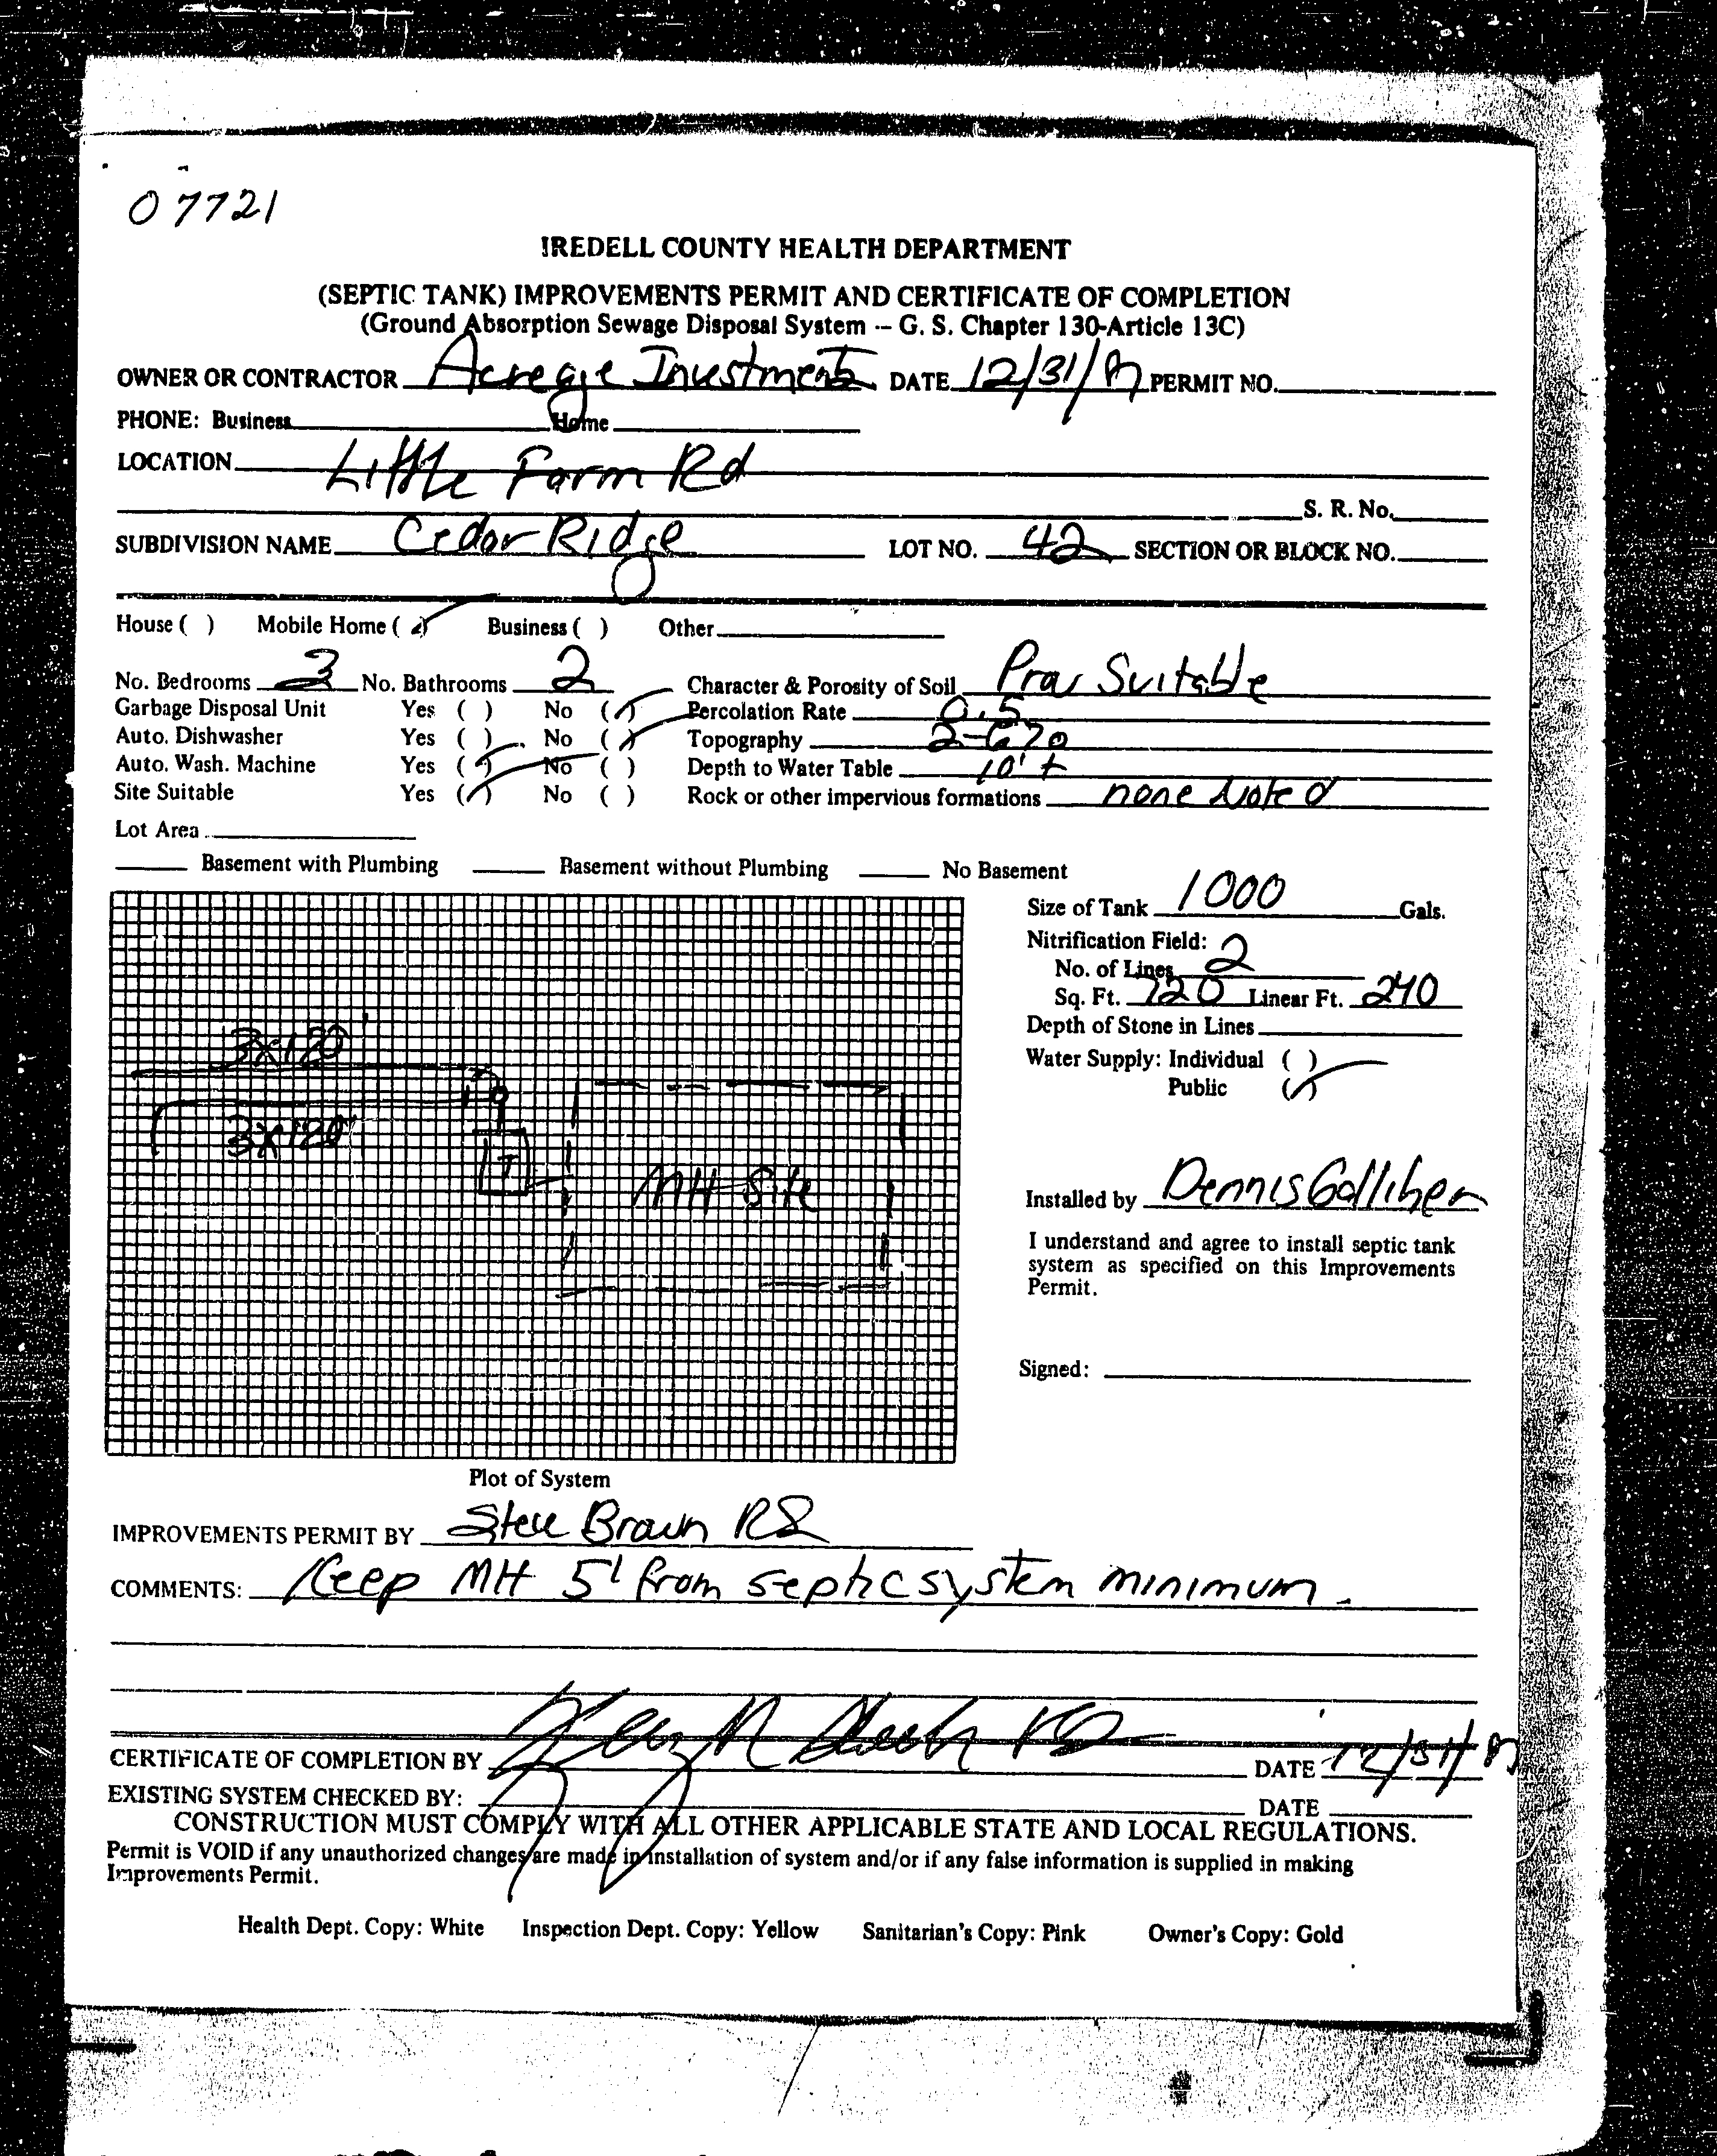 07721
IREDELL COUNTY HEALTH DEPARTMENT
(SEPTIC TANK) IMPROVEMENTS PERMIT AND CERTIFICATE OF COMPLETION
(Ground Absorption Sewage Disposal System -- G. S. Chapter 130-Article 13C)
OWNER OR CONTRACTOR Acreage Investments DATE 12/31/87 PERMIT NO.
PHONE: Business Home
LOCATION Little Farm Rd
S. R. No.
SUBDIVISION NAME Cedar Ridge LOT NO. 42 SECTION OR BLOCK NO.
House ( ) Mobile Home (✓) Business ( ) Other
No. Bedrooms 3 No. Bathrooms 2 Character & Porosity of Soil Prov Suitable
Garbage Disposal Unit Yes ( ) No (✓) Percolation Rate 0.5
Auto. Dishwasher Yes ( ) No (✓) Topography 2-6%
Auto. Wash. Machine Yes (✓) No ( ) Depth to Water Table 10'+
Site Suitable Yes (✓) No ( ) Rock or other impervious formations none Noted
Lot Area
Basement with Plumbing Basement without Plumbing No Basement
Size of Tank 1000 Gals.
Nitrification Field:
No. of Lines 2
Sq. Ft. 720 Linear Ft. 240
Depth of Stone in Lines
Water Supply: Individual ( )
Public (✓)
3x120'
3x120'
T
MH Site
Installed by Dennis Galliher
I understand and agree to install septic tank
system as specified on this Improvements
Permit.
Signed:
Plot of System
IMPROVEMENTS PERMIT BY Steve Brown RS
COMMENTS: Keep MH 5' from septic system minimum.
CERTIFICATE OF COMPLETION BY RS DATE 12/31/87
EXISTING SYSTEM CHECKED BY: DATE
CONSTRUCTION MUST COMPLY WITH ALL OTHER APPLICABLE STATE AND LOCAL REGULATIONS.
Permit is VOID if any unauthorized changes are made in installation of system and/or if any false information is supplied in making
Improvements Permit.
Health Dept. Copy: White Inspection Dept. Copy: Yellow Sanitarian's Copy: Pink Owner's Copy: Gold